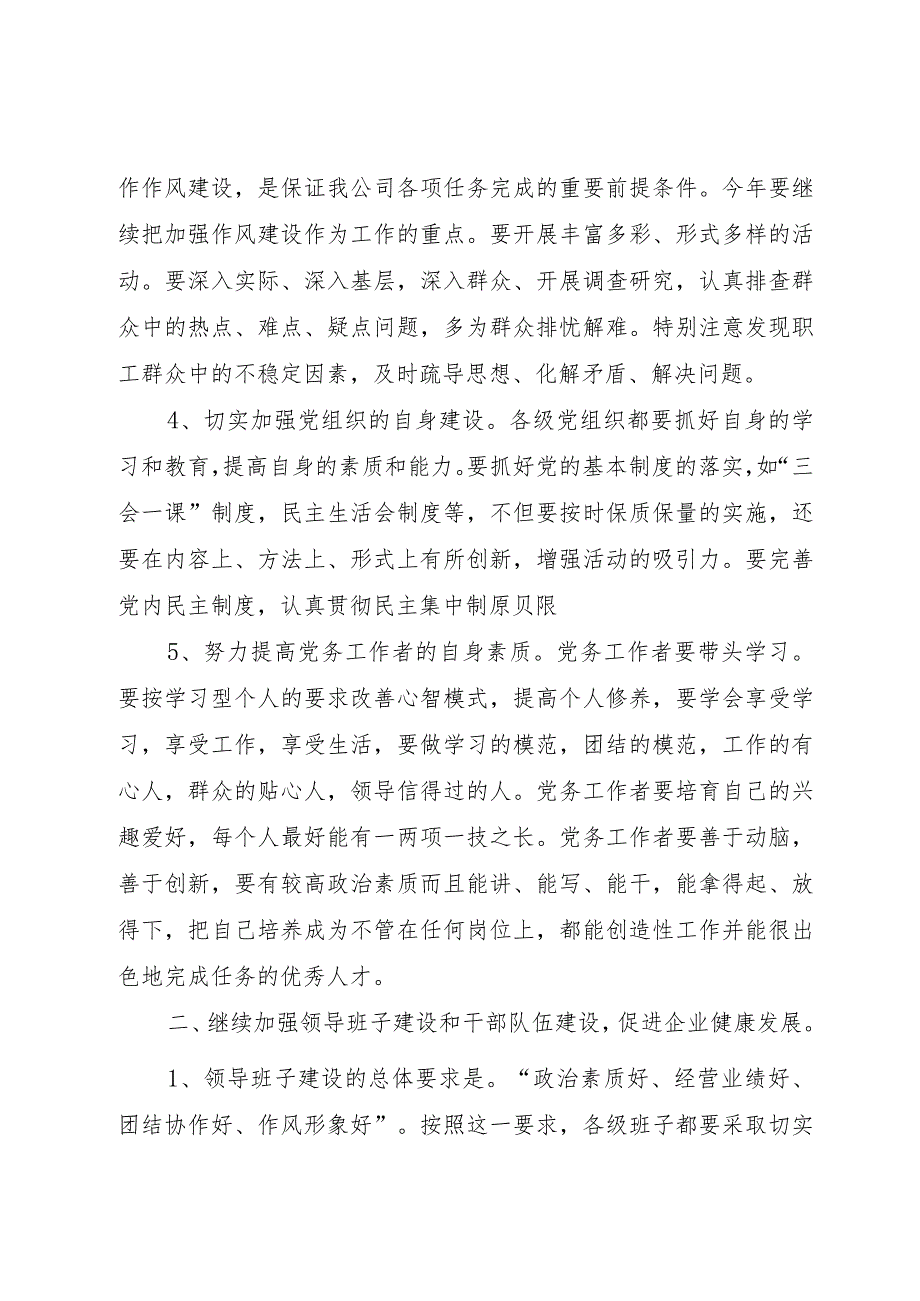 作作风建设，是保证我公司各项任务完成的重要前提条件。今年要继
续把加强作风建设作为工作的重点。要开展丰富多彩、形式多样的活
动。要深入实际、深入基层，深入群众、开展调查研究，认真排查群
众中的热点、难点、疑点问题，多为群众排忧解难。特别注意发现职
工群众中的不稳定因素，及时疏导思想、化解矛盾、解决问题。
4、切实加强党组织的自身建设。各级党组织都要抓好自身的学
习和教育，提高自身的素质和能力。要抓好党的基本制度的落实，如“三
会一课”制度，民主生活会制度等，不但要按时保质保量的实施，还
要在内容上、方法上、形式上有所创新，增强活动的吸引力。要完善
党内民主制度，认真贯彻民主集中制原贝限
5、努力提高党务工作者的自身素质。党务工作者要带头学习。
要按学习型个人的要求改善心智模式，提高个人修养，要学会享受学
习，享受工作，享受生活，要做学习的模范，团结的模范，工作的有
心人，群众的贴心人，领导信得过的人。党务工作者要培育自己的兴
趣爱好，每个人最好能有一两项一技之长。党务工作者要善于动脑，
善于创新，要有较高政治素质而且能讲、能写、能干，能拿得起、放
得下，把自己培养成为不管在任何岗位上，都能创造性工作并能很出
色地完成任务的优秀人才。
二、继续加强领导班子建设和干部队伍建设，促进企业健康发展。
1、领导班子建设的总体要求是。“政治素质好、经营业绩好、
团结协作好、作风形象好”。按照这一要求，各级班子都要采取切实